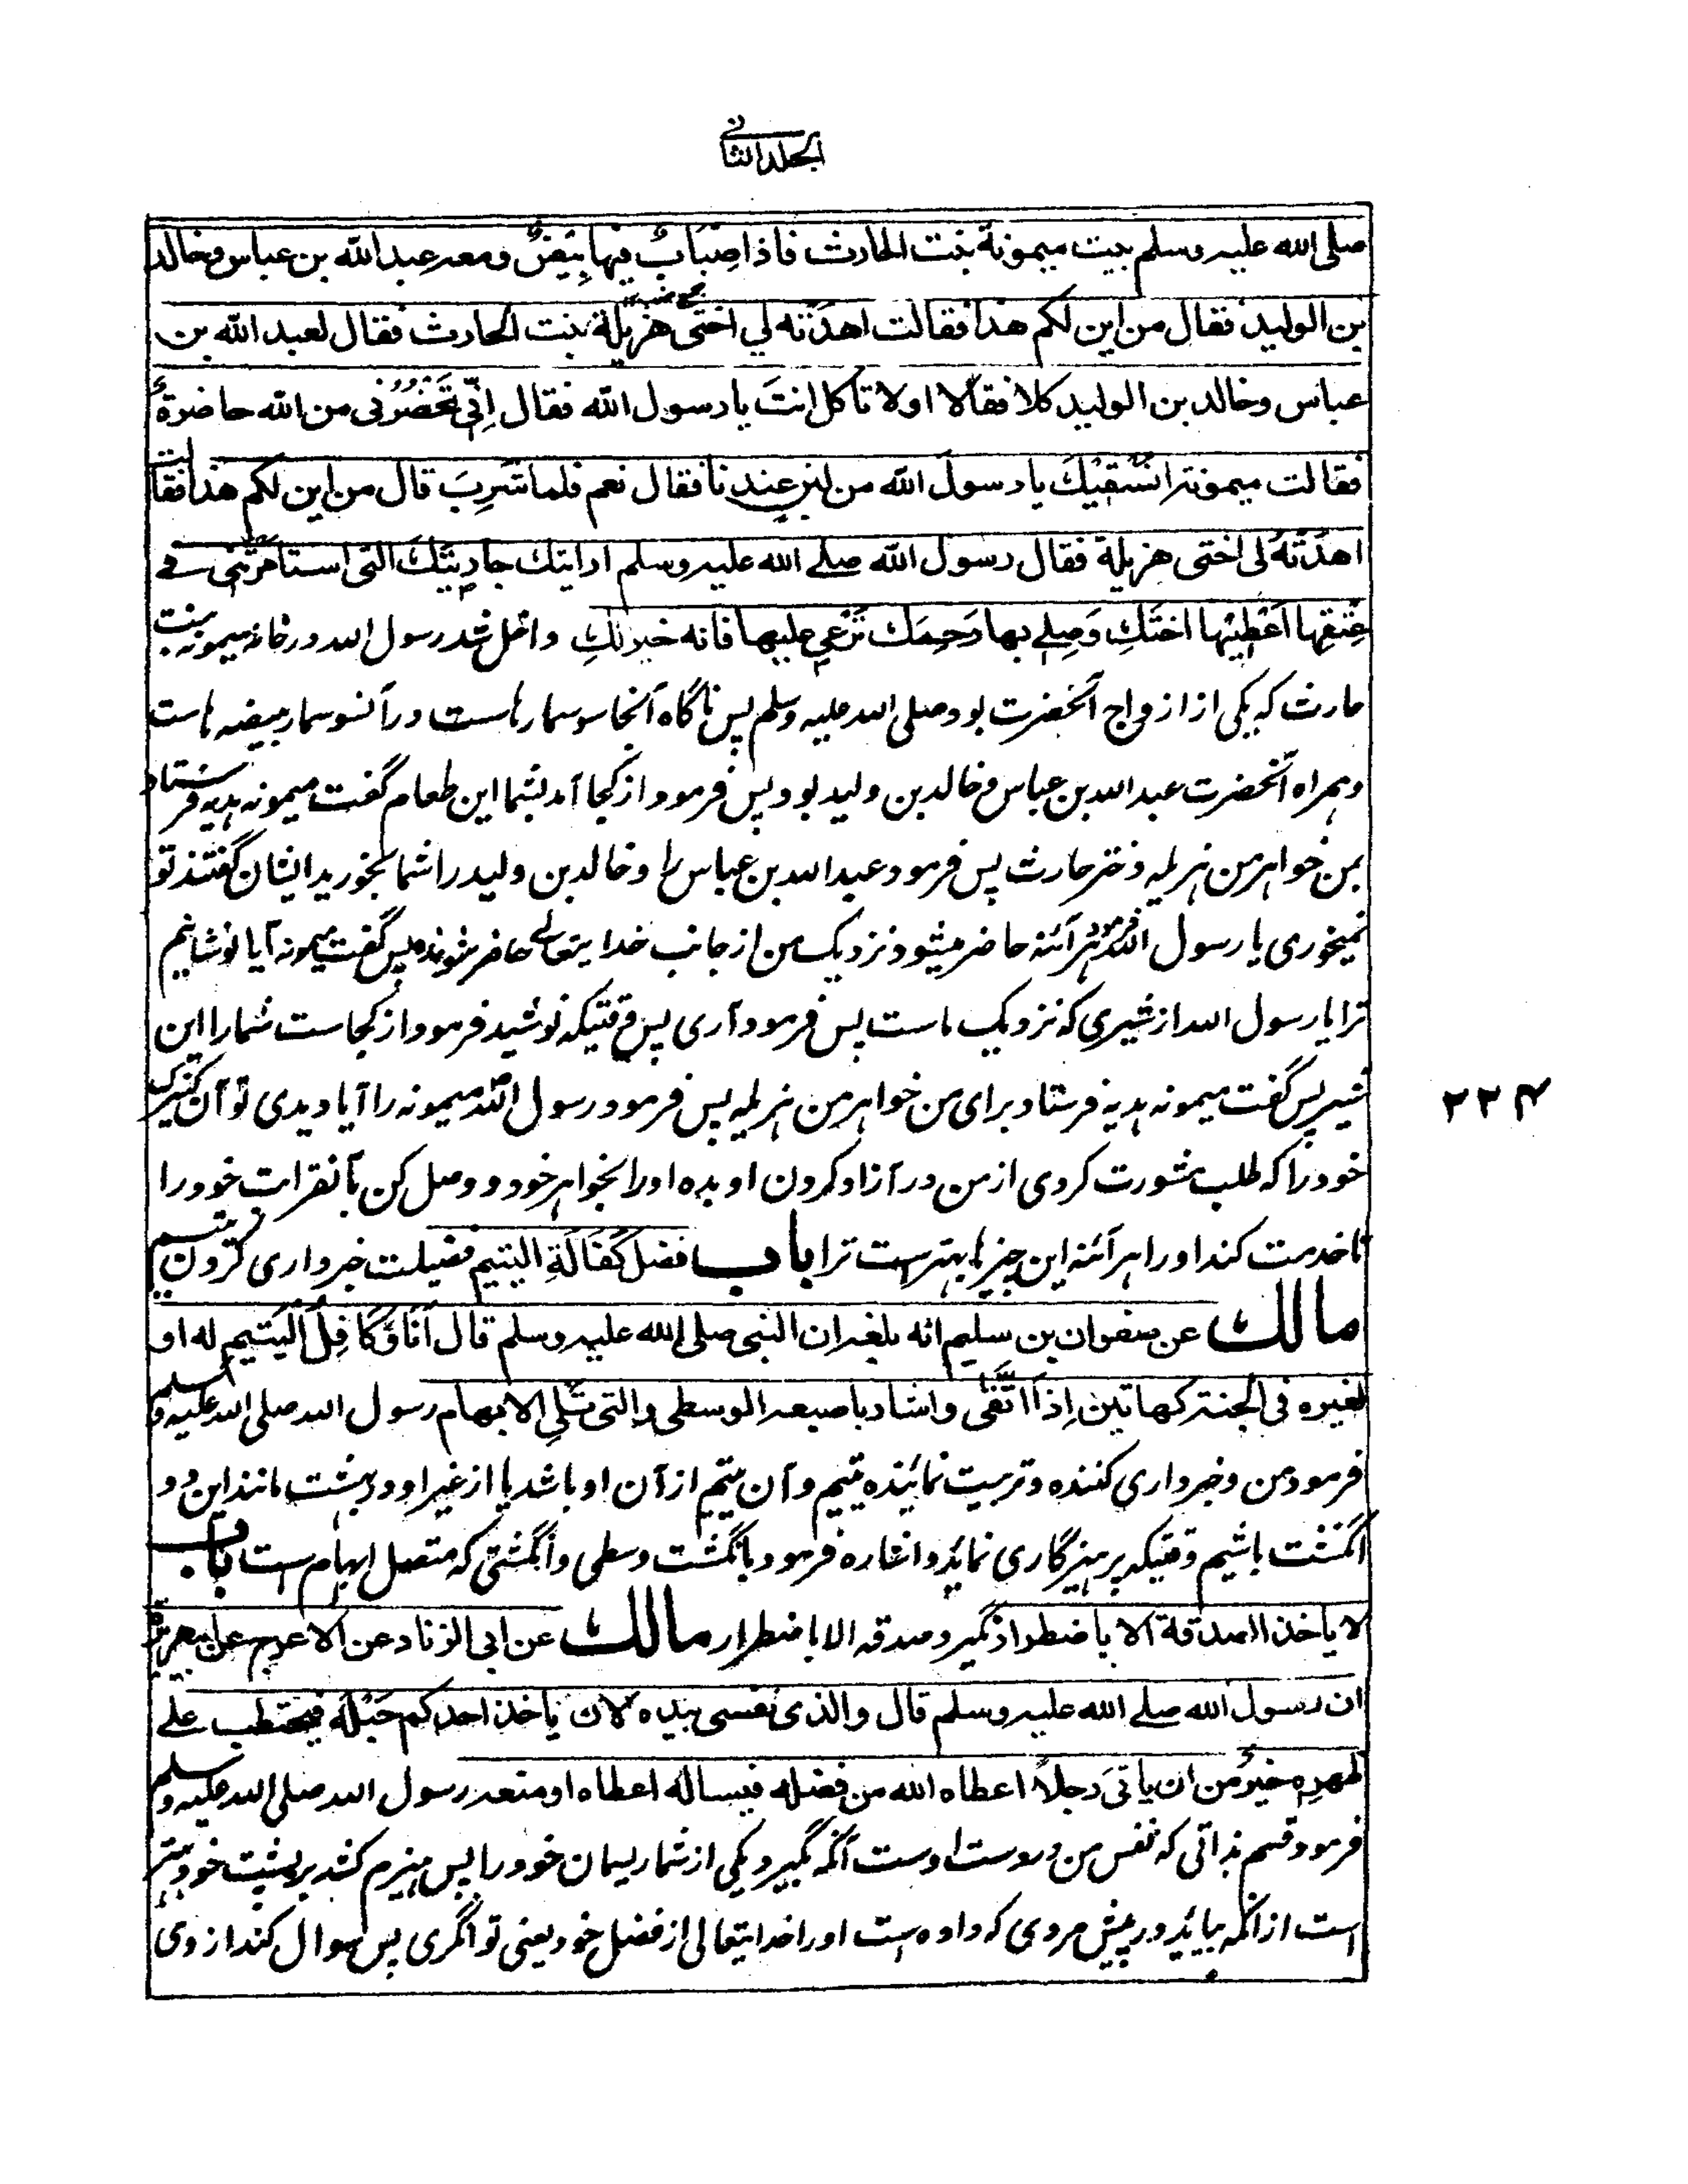 الجلد الثاني
صلى الله عليه وسلم بيت ميمونة بنت الحارث فاذا ضِبَابٌ فيها بَيضٌ ومعه عبد الله بن عباس وخالد
بن الوليد فقال من اين لكم هذا فقالت اهدَتْه لي اختى هزيلة بنت الحارث فقال لعبد الله بن
عباس وخالد بن الوليد كلا فقالا اولا تأكل انتَ يا رسول الله فقال اِنّي تَحْضُرُنى من الله حاضرةٌ
فقالت ميمونة انَسْقِيْكَ يا رسولَ الله من لبن عندنا فقال نعم فلما شَرِبَ قال من اين لكم هذا فقالت
اهدَتْهُ لى اختى هزيلة فقال رسول الله صلے الله عليه وسلم ارايتك جارِيَتَكَ التى استامَرْتِنى فے
عِتقِها اَعْطِيْها اختَكِ وَصِلے بها رَحِمَك تَرْعى عليها فانه خير لكِ داخل شد رسول الله در خانه ميمونه بنت
حارث كه يكى از ازواج آنحضرت بود صلى الله عليه وسلم پس ناگاه آنجا سوسمار هاست در آن سوسمار بيضه هاست
وهمراه آنحضرت عبد الله بن عباس و خالد بن وليد بود پس فرمود از كجا آمد بشما اين طعام گفت ميمونه هديه فرستاد
بمن خواهر من هزيله دختر حارث پس فرمود عبد الله بن عباس را و خالد بن وليد را شما بخوريد ايشان گفتند تو
نميخورى يا رسول الله فرمود هرآئنه حاضر ميشود نزديك من از جانب خدا يتعالے حاضر شونده پس گفت ميمونه آيا نوشانيم
ترا يا رسول الله از شيرى كه نزديك ماست پس فرمود آرى پس وقتيكه نوشيد فرمود از كجاست شما را اين
شير پس گفت ميمونه هديه فرستاد براى من خواهر من هزيله پس فرمود رسول الله ميمونه را آيا ديدى تو آن كنيزك
خود را كه طلب مشورت كردى از من در آزاد كردن او بده او را بخواهر خود و وصل كن بآن قرابت خود را
تا خدمت كند او را هرآئنه اين چيزها بهترست ترا باب فضل كَفَالَةِ اليتيم فضيلت خبردارى كردن يتيم
مالك عن صفوان بن سليم انه بلغه ان النبى صلى الله عليه وسلم قال اَنَا وَكَافِلُ اليَتيمِ له او
لغيره فى الجنة كهاتين اِذَا اتَّقٰى واشار باصبعه الوسطى والتى تَلِى الابهام رسول الله صلى الله عليه وسلم
فرمود من و خبردارى كننده و تربيت نمائنده يتيم و آن يتيم از آن او باشد يا از غير او در بهشت مانند اين دو
انگشت باشيم وقتيكه پرهيزگارى نمايد و اشاره فرمود بانگشت وسطى و انگشتى كه متصل ابهام است باب
لا ياخذ الصدقة الا باضطرار نگيرد صدقه الا باضطرار مالك عن ابى الزناد عن الاعرج عن ابى هريرة
ان رسول الله صلے الله عليه وسلم قال والذى نفسى بيده لان ياخذ احدكم حَبْلَه فيحتطب علے
ظهرِه خيرٌ من ان ياتىَ رجلاً اعطاه الله من فضله فيساله اعطاه او منعه رسول الله صلى الله عليه وسلم
فرمود قسم بذاتى كه نفس من در دست اوست آنكه بگيرد يكى از شما ريسمان خود را پس هيزم كشد بر پشت خود بهتر
است از آنكه بيايد در پيش مردى كه داده است او را خدا يتعالى از فضل خود يعنى توانگرى پس سوال كند از وى
٢٢٤